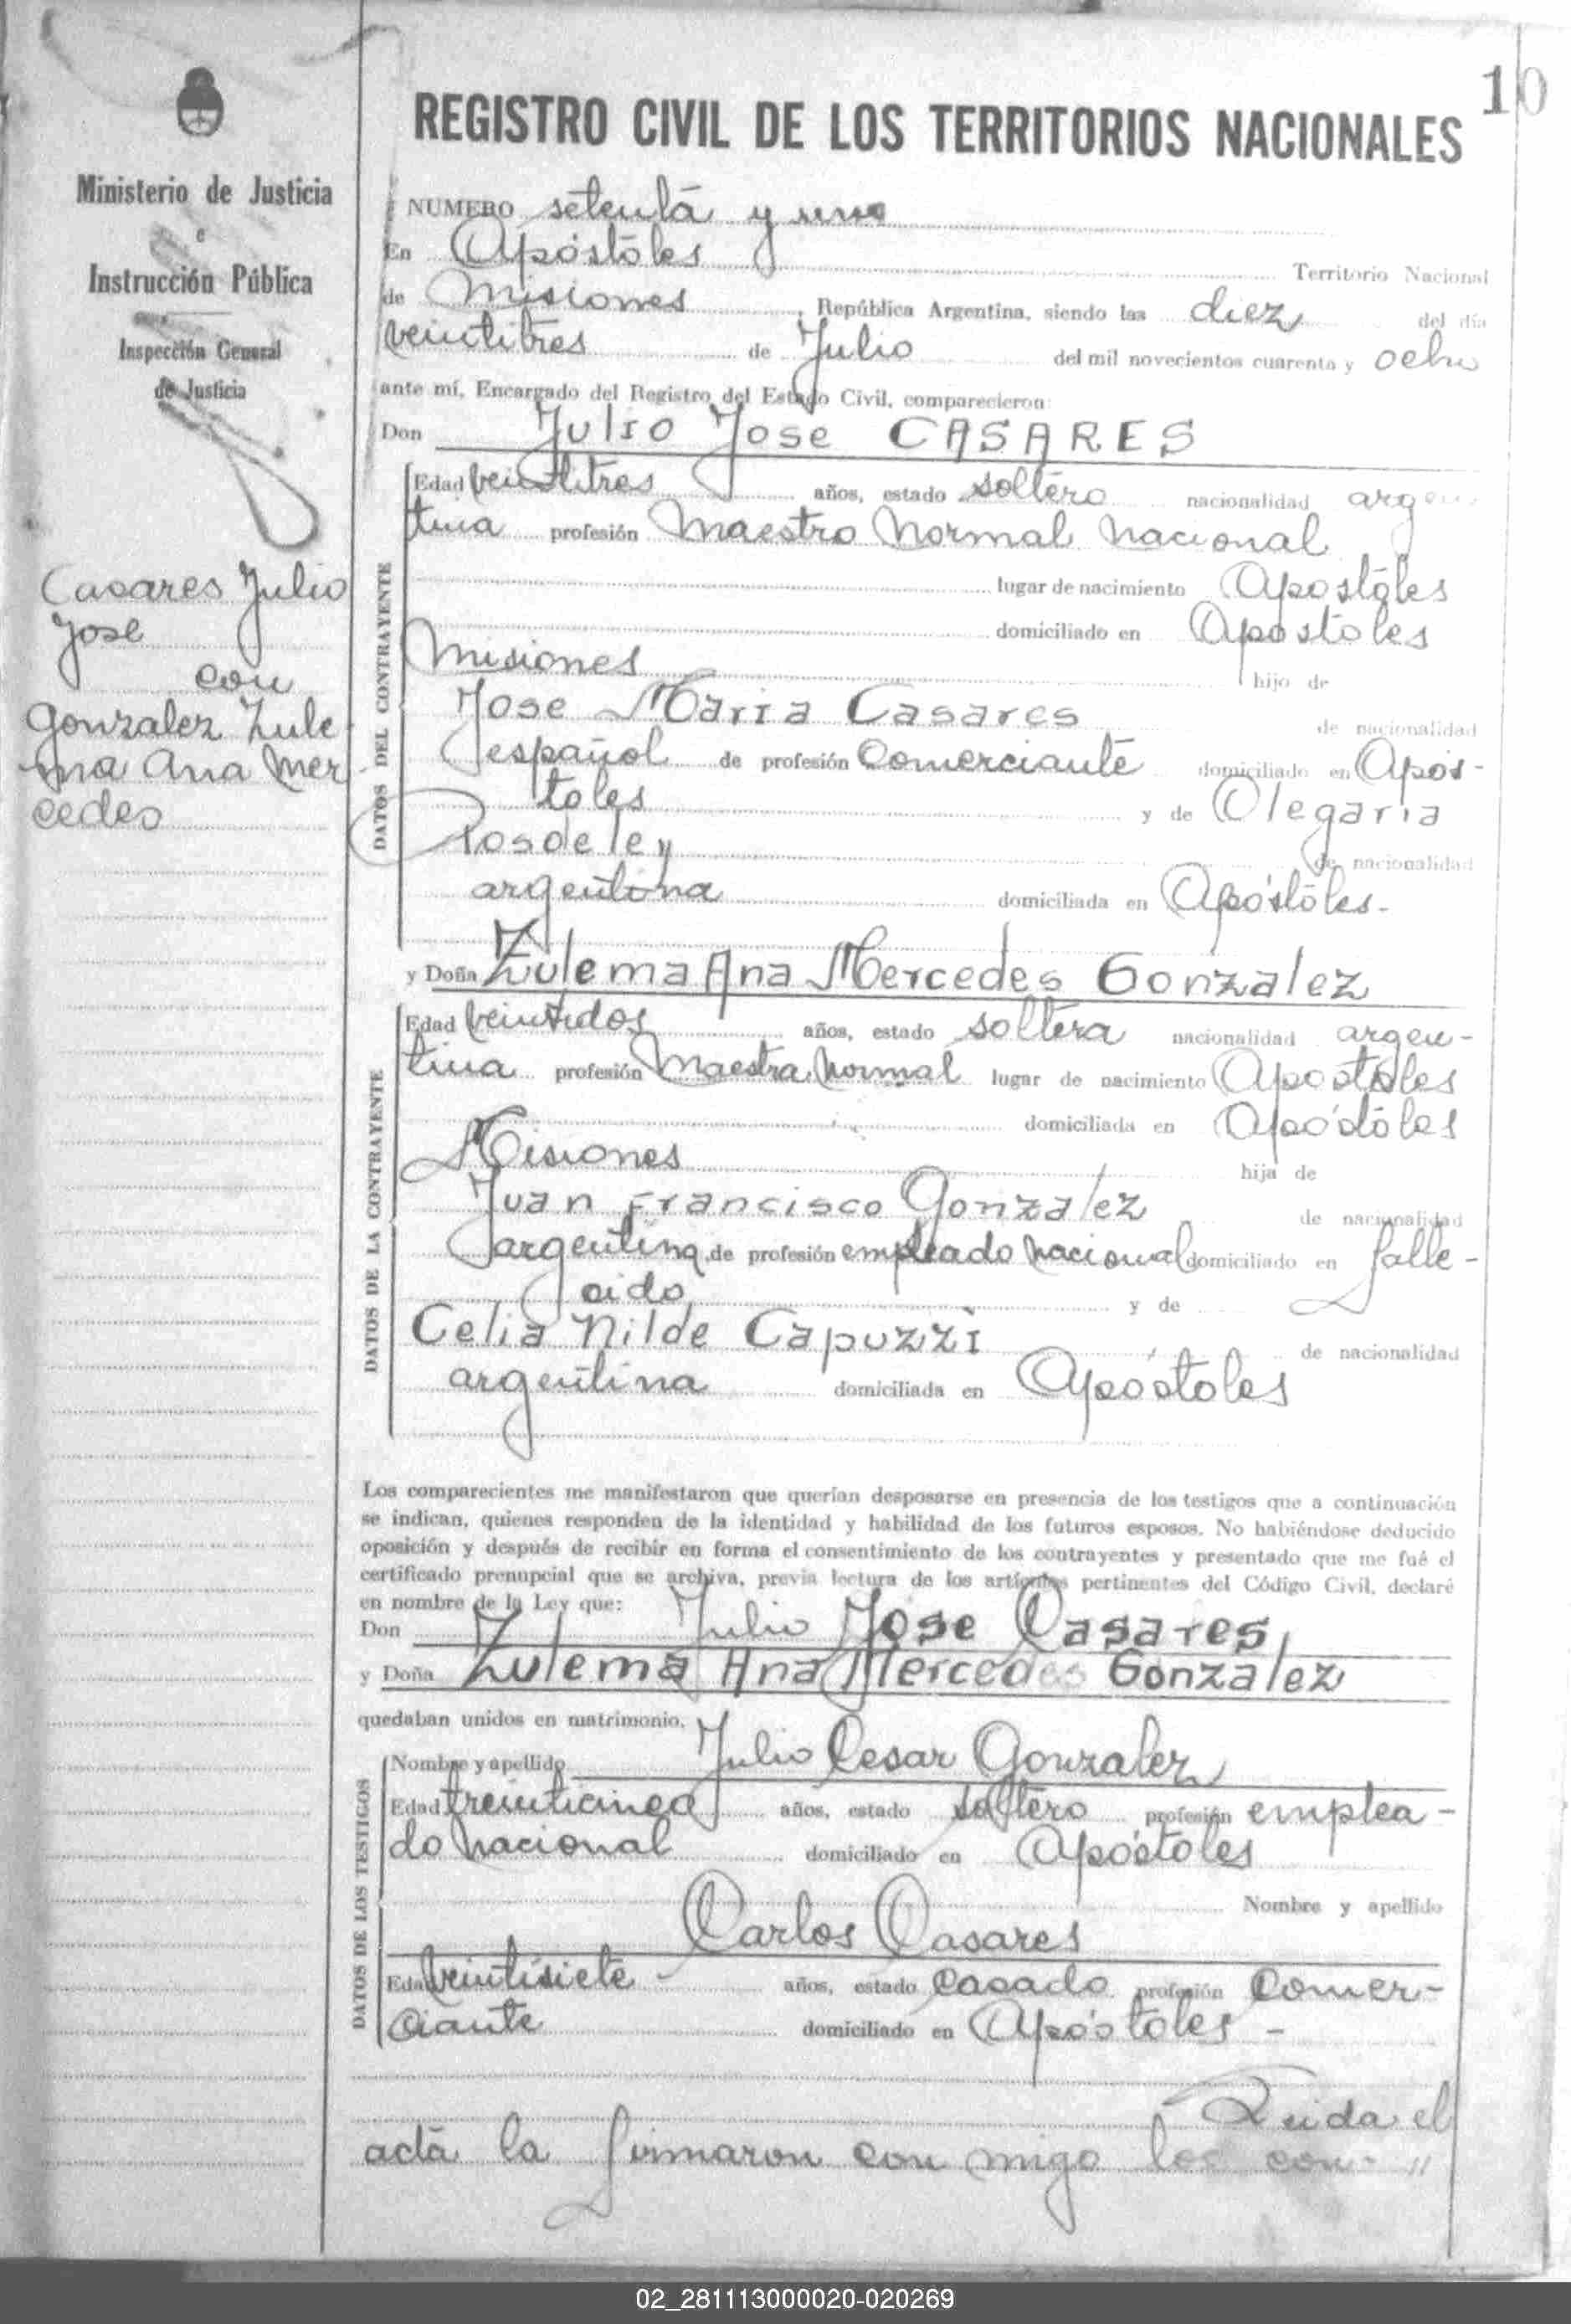 10
Ministerio de Justicia
e
Instrucción Pública
Inspección General
de Justicia
Casares Julio
Jose
con
Gonzalez Zule
ma Ana Mer
cedes
REGISTRO CIVIL DE LOS TERRITORIOS NACIONALES
NUMERO setenta y uno
En Apóstoles Territorio Nacional
de Misiones, República Argentina, siendo las diez del día
veintitres de Julio del mil novecientos cuarenta y ocho
ante mí, Encargado del Registro del Estado Civil, comparecieron:
Don Julio Jose CASARES
DATOS DEL CONTRAYENTE
Edad veintitres años, estado soltero nacionalidad argen
tina profesión Maestro Normal Nacional
lugar de nacimiento Apostoles
domiciliado en Apostoles
Misiones hijo de
Jose Maria Casares de nacionalidad
español de profesión Comerciante domiciliado en Após-
toles y de Olegaria
Posdeley de nacionalidad
argentina domiciliada en Apóstoles.-
y Doña Zulema Ana Mercedes Gonzalez
DATOS DE LA CONTRAYENTE
Edad veintidos años, estado soltera nacionalidad argen-
tina profesión Maestra Normal lugar de nacimiento Apostoles
domiciliada en Apóstoles
Misiones hija de
Juan Francisco Gonzalez de nacionalidad
argentina de profesión empleado nacional domiciliado en falle-
cido y de
Celia Nilde Capuzzi de nacionalidad
argentina domiciliada en Apóstoles
Los comparecientes me manifestaron que querían desposarse en presencia de los testigos que a continuación
se indican, quienes responden de la identidad y habilidad de los futuros esposos. No habiéndose deducido
oposición y después de recibir en forma el consentimiento de los contrayentes y presentado que me fué el
certificado prenupcial que se archiva, previa lectura de los artículos pertinentes del Código Civil, declaré
en nombre de la Ley que:
Don Julio Jose Casares,
y Doña Zulema Ana Mercedes Gonzalez
quedaban unidos en matrimonio.
DATOS DE LOS TESTIGOS
Nombre y apellido Julio Cesar Gonzalez
Edad treinticinco años, estado soltero profesión emplea-
do nacional domiciliado en Apóstoles
Nombre y apellido
Carlos Casares
Edad veintisiete - años, estado casado profesión Comer-
ciante domiciliado en Apóstoles -
Leida el
acta la firmaron con migo los con- "
02_281113000020-020269